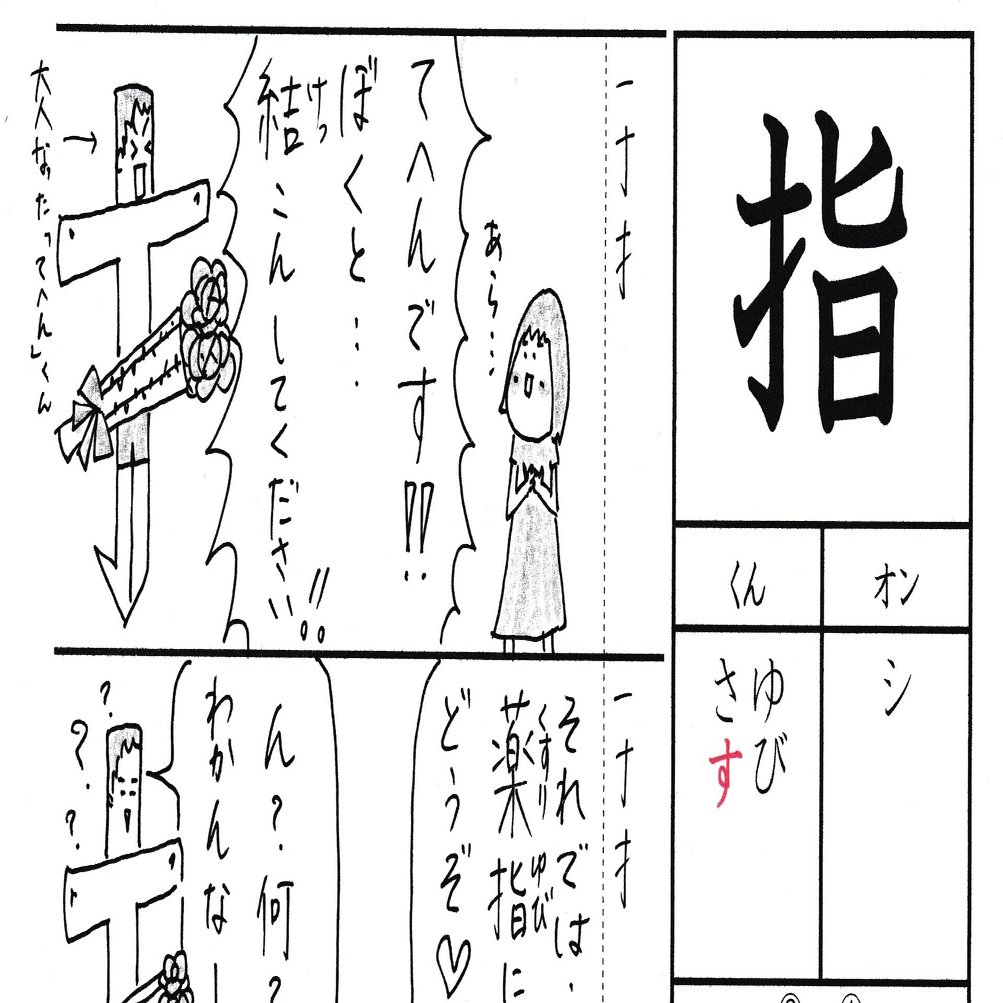 指
オン
くん
シ
ゆび
さす
一 十 扌 扌
あら…
てへんです!!
ぼくと…
結こんしてください!!
けっ
大人なった「てへん」くん
一 十 扌
それでは・
薬指に
くすり ゆび
どうぞ♡
ん?何?
わかんなー
? ? ? ?